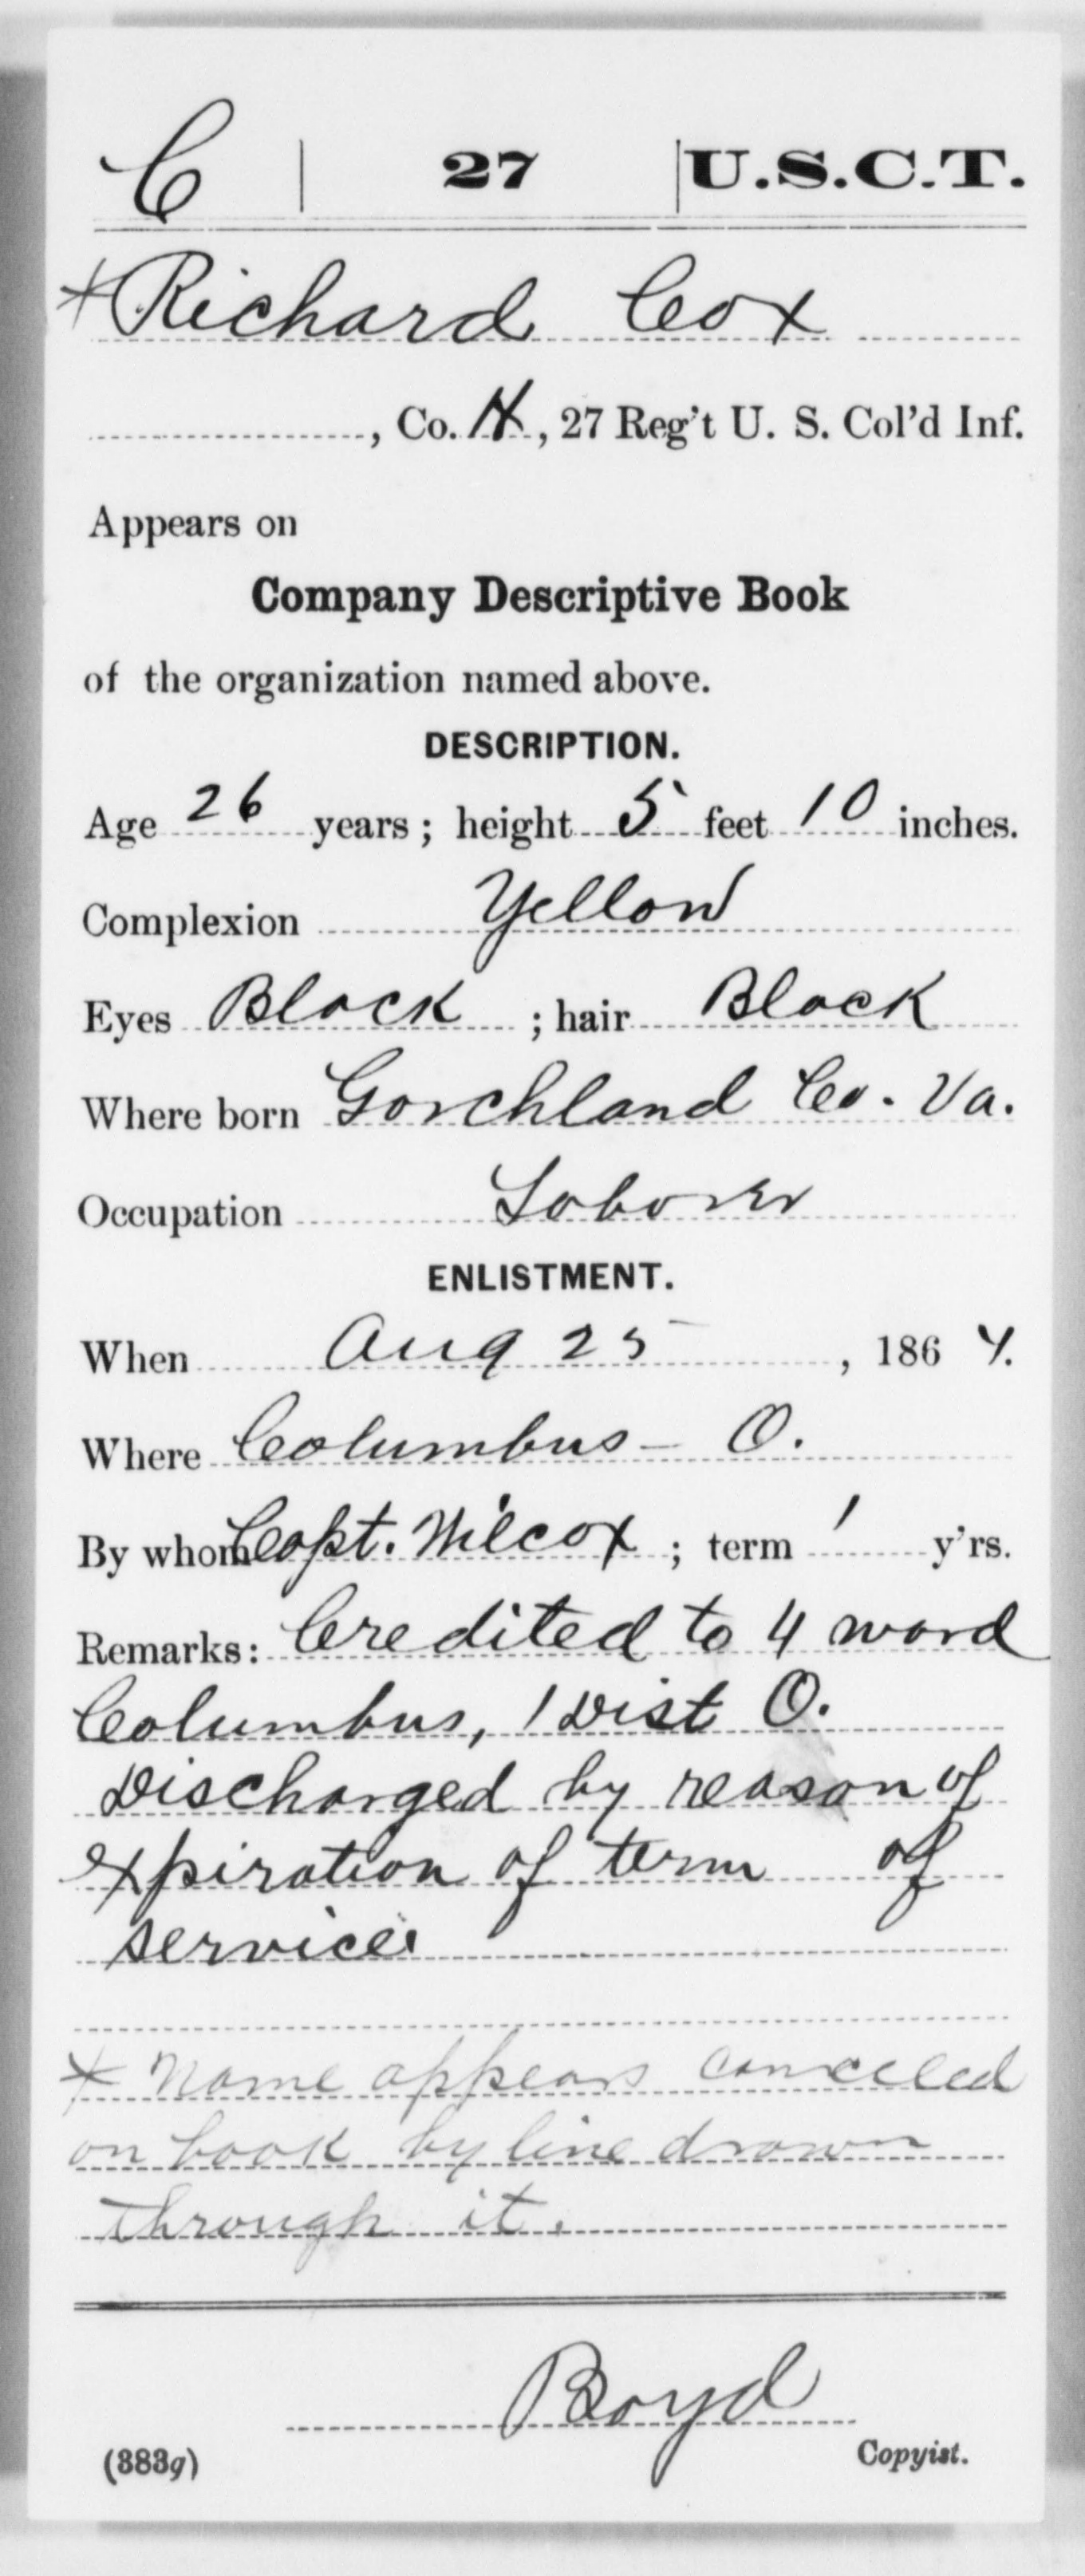 C | 27 | U.S.C.T.
* Richard Cox
, Co. H, 27 Reg't U. S. Col'd Inf.
Appears on
Company Descriptive Book
of the organization named above.
DESCRIPTION.
Age 26 years; height 5 feet 10 inches.
Complexion Yellow
Eyes Black ; hair Black
Where born Gorchland Co. Va.
Occupation Laborer
ENLISTMENT.
When Aug 25 , 186 4.
Where Columbus - O.
By whom Capt. Wilcox ; term 1 y'rs.
Remarks: Credited to 4 ward
Columbus, 1 Dist O.
Discharged by reason of
expiration of term of
service.
* Name appears canceled
on book by line drawn
through it.
Boyd
(383g) Copyist.